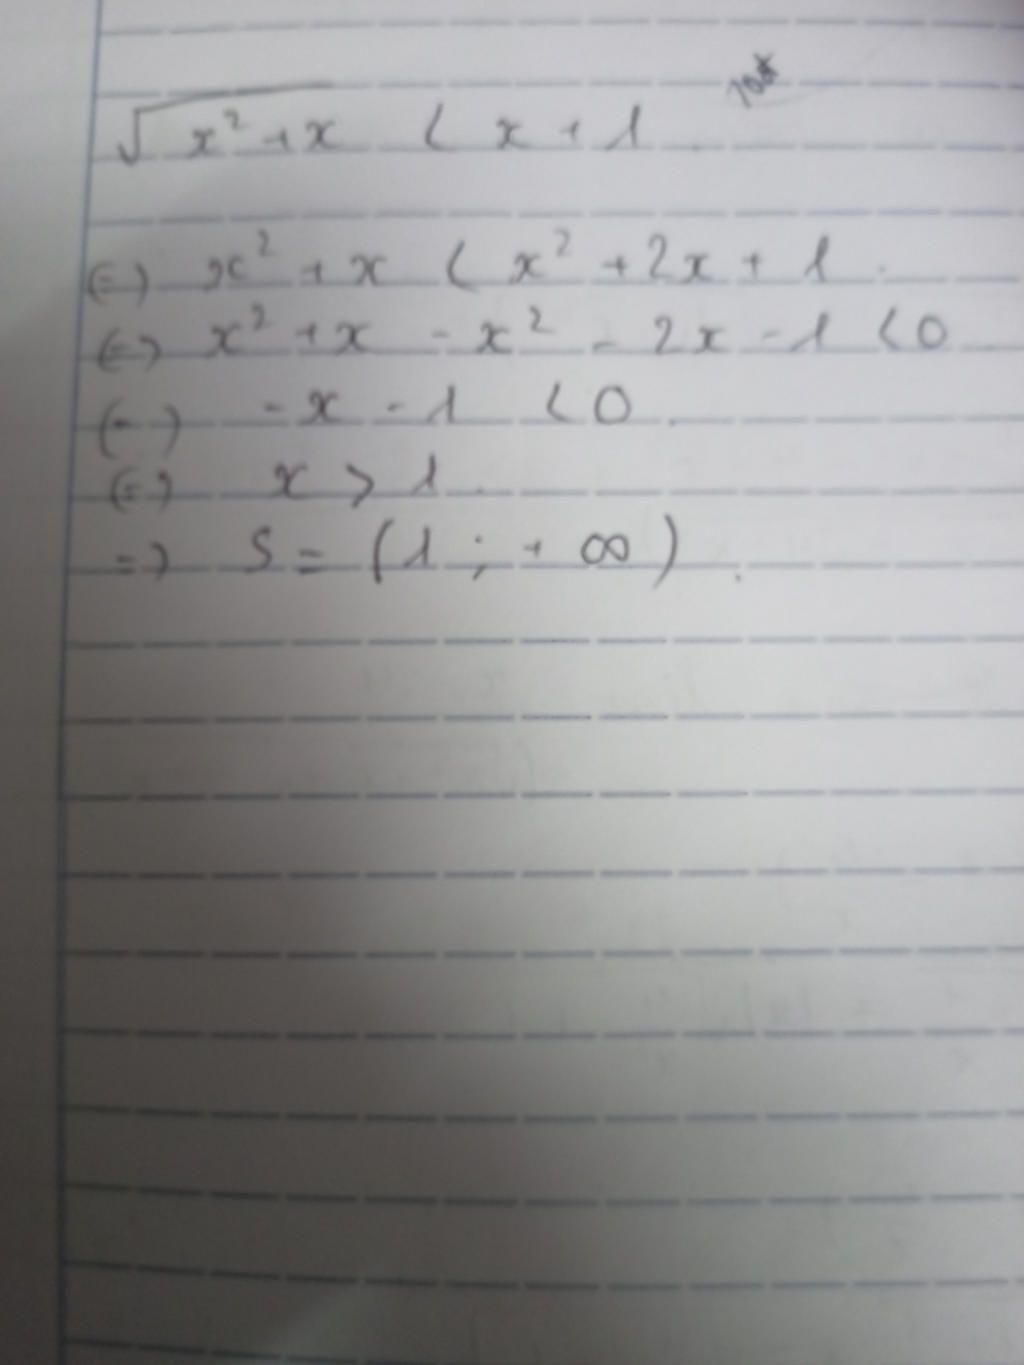 √x² + x < x + 1
(=) x² + x < x² + 2x + 1
(=) x² + x - x² - 2x - 1 < 0
(-) - x - 1 < 0
(=) x > 1
=) S = (1 ; + ∞)